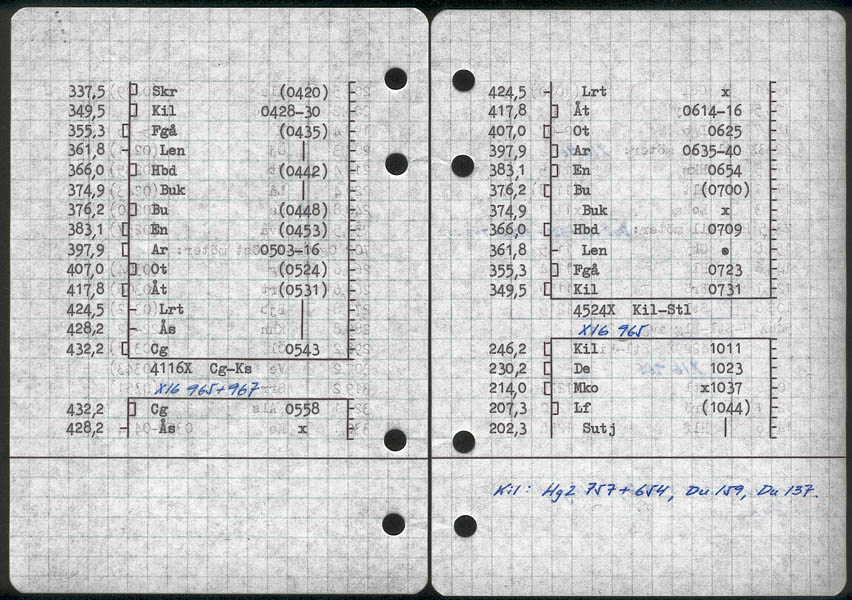 337,5 Skr (0420)
349,5 Kil 0428-30
355,3 Fgå (0435)
361,8 Len |
366,0 Hbd (0442)
374,9 Buk |
376,2 Bu (0448)
383,1 En (0453)
397,9 Ar 0503-16
407,0 Ot (0524)
417,8 Åt (0531)
424,5 Lrt |
428,2 Ås |
432,2 Cg 0543
4116X Cg-Ks
X16 965+967
432,2 Cg 0558
428,2 Ås x
424,5 Lrt x
417,8 Åt 0614-16
407,0 Ot 0625
397,9 Ar 0635-40
383,1 En 0654
376,2 Bu (0700)
374,9 Buk x
366,0 Hbd 0709
361,8 Len ⊗
355,3 Fgå 0723
349,5 Kil 0731
4524X Kil-Stl
X16 965
246,2 Kil 1011
230,2 De 1023
214,0 Mko x1037
207,3 Lf (1044)
202,3 Sutj |
Kil: Hg2 757+654, Du 159, Du 137.